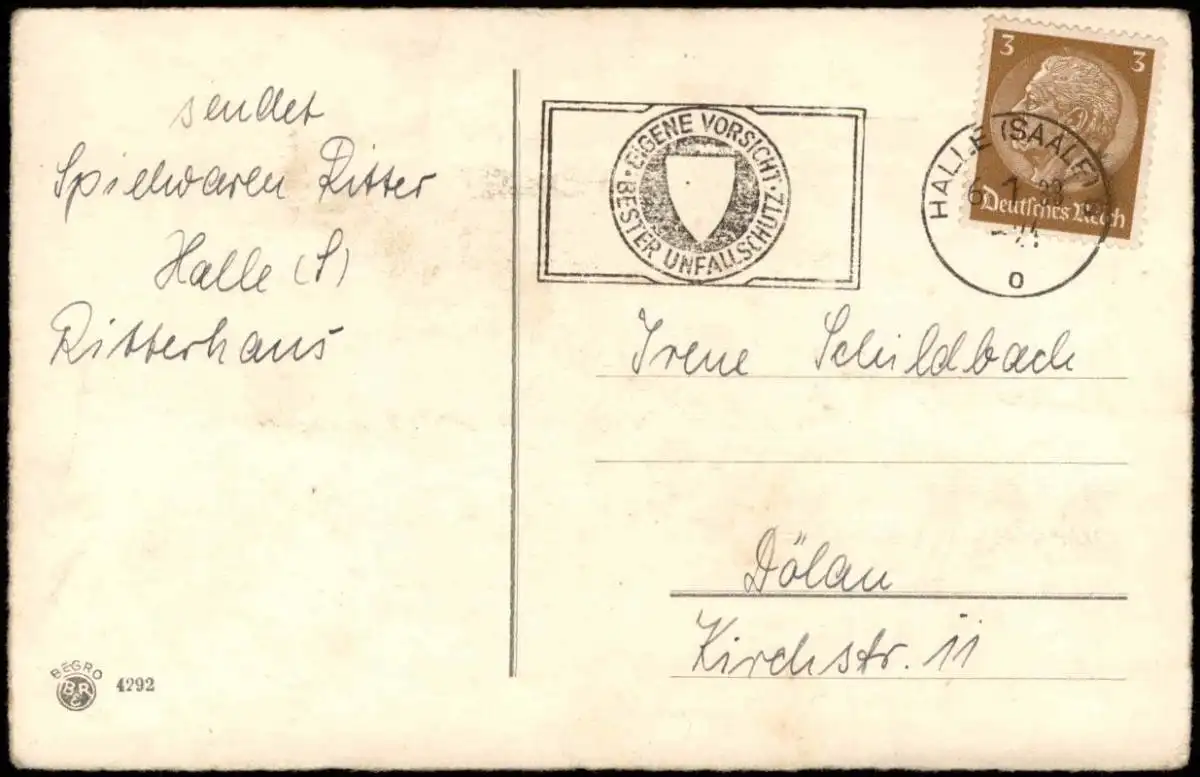 sendet
Spielwaren Ritter
Halle (S)
Ritterhaus
BEGRO
4292
EIGENE VORSICHT · BESTER UNFALLSCHUTZ ·
3 3
Deutsches Reich
HALLE (SAALE)
o
Irene Schildbach
Dölau
Kirchstr. 11